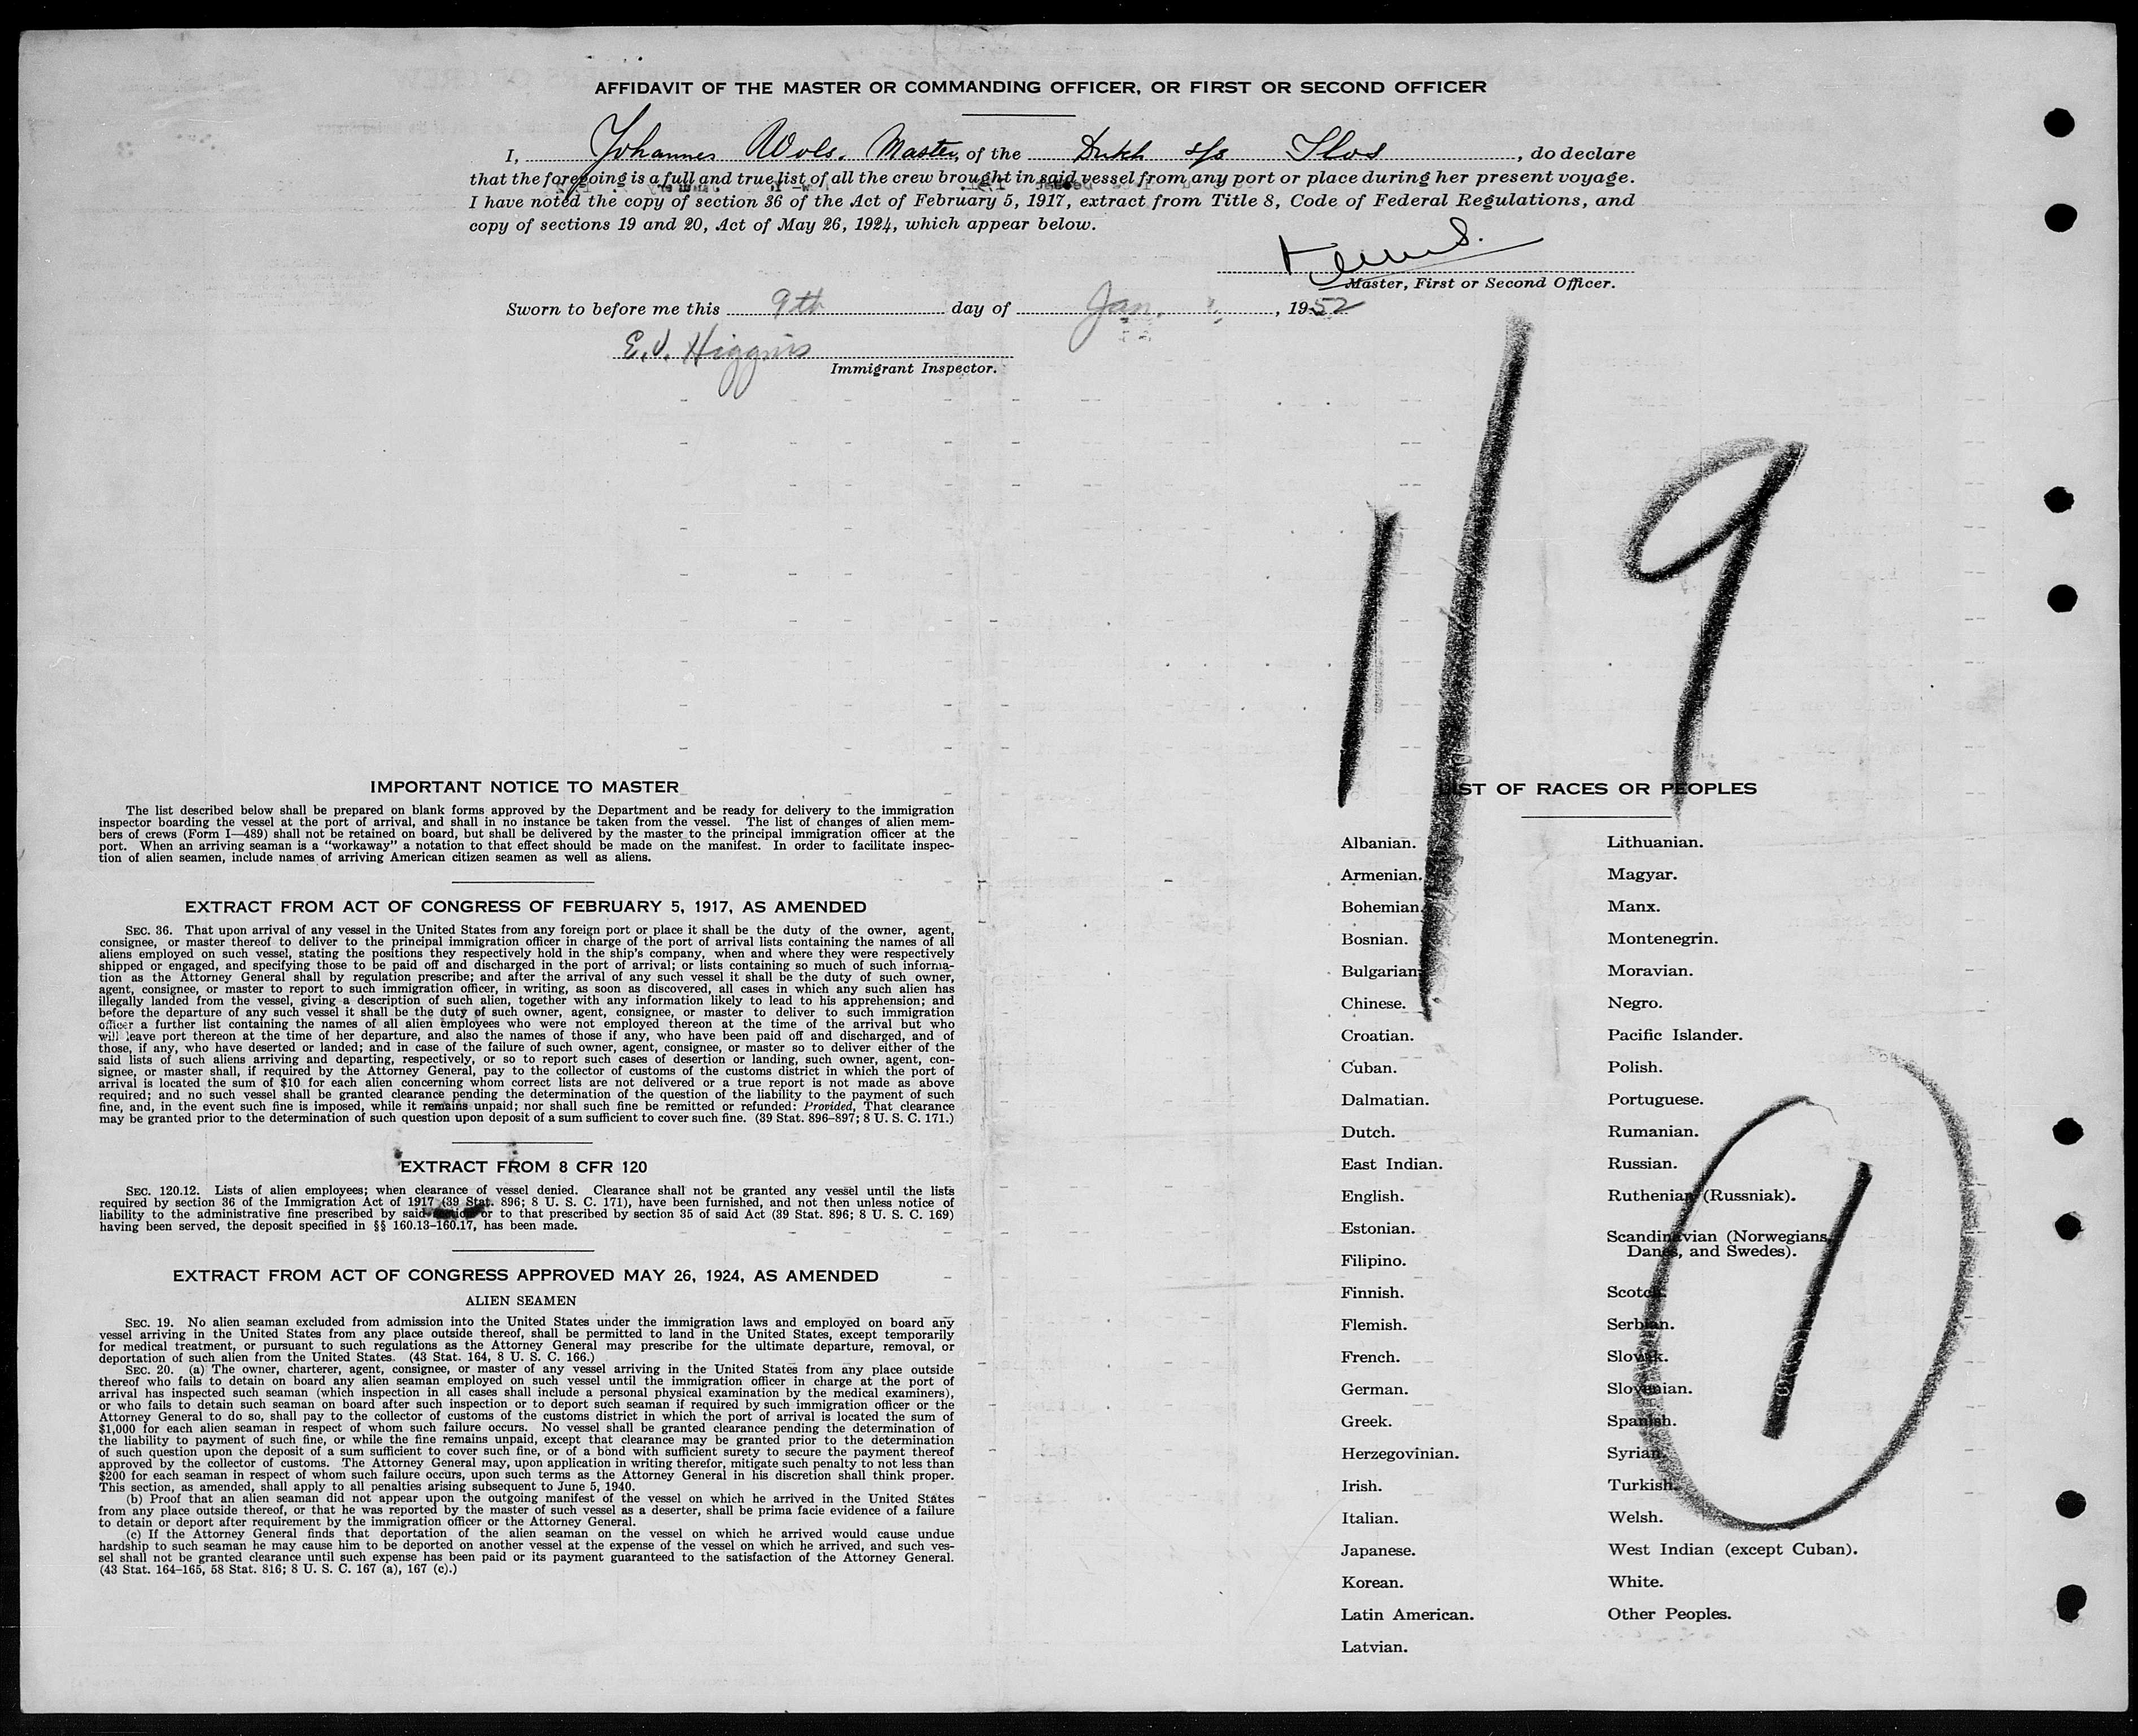 AFFIDAVIT OF THE MASTER OR COMMANDING OFFICER, OR FIRST OR SECOND OFFICER
I, Johannes Wols. Master, of the Dutch s/s Ilos, do declare
that the foregoing is a full and true list of all the crew brought in said vessel from any port or place during her present voyage.
I have noted the copy of section 36 of the Act of February 5, 1917, extract from Title 8, Code of Federal Regulations, and
copy of sections 19 and 20, Act of May 26, 1924, which appear below.
Master, First or Second Officer.
Sworn to before me this 9th day of Jan., 1952
E.J. Higgins
Immigrant Inspector.
1/9
IMPORTANT NOTICE TO MASTER
The list described below shall be prepared on blank forms approved by the Department and be ready for delivery to the immigration
inspector boarding the vessel at the port of arrival, and shall in no instance be taken from the vessel. The list of changes of alien mem-
bers of crews (Form I—489) shall not be retained on board, but shall be delivered by the master to the principal immigration officer at the
port. When an arriving seaman is a "workaway" a notation to that effect should be made on the manifest. In order to facilitate inspec-
tion of alien seamen, include names of arriving American citizen seamen as well as aliens.
EXTRACT FROM ACT OF CONGRESS OF FEBRUARY 5, 1917, AS AMENDED
SEC. 36. That upon arrival of any vessel in the United States from any foreign port or place it shall be the duty of the owner, agent,
consignee, or master thereof to deliver to the principal immigration officer in charge of the port of arrival lists containing the names of all
aliens employed on such vessel, stating the positions they respectively hold in the ship's company, when and where they were respectively
shipped or engaged, and specifying those to be paid off and discharged in the port of arrival; or lists containing so much of such informa-
tion as the Attorney General shall by regulation prescribe; and after the arrival of any such vessel it shall be the duty of such owner,
agent, consignee, or master to report to such immigration officer, in writing, as soon as discovered, all cases in which any such alien has
illegally landed from the vessel, giving a description of such alien, together with any information likely to lead to his apprehension; and
before the departure of any such vessel it shall be the duty of such owner, agent, consignee, or master to deliver to such immigration
officer a further list containing the names of all alien employees who were not employed thereon at the time of the arrival but who
will leave port thereon at the time of her departure, and also the names of those if any, who have been paid off and discharged, and of
those, if any, who have deserted or landed; and in case of the failure of such owner, agent, consignee, or master so to deliver either of the
said lists of such aliens arriving and departing, respectively, or so to report such cases of desertion or landing, such owner, agent, con-
signee, or master shall, if required by the Attorney General, pay to the collector of customs of the customs district in which the port of
arrival is located the sum of $10 for each alien concerning whom correct lists are not delivered or a true report is not made as above
required; and no such vessel shall be granted clearance pending the determination of the question of the liability to the payment of such
fine, and, in the event such fine is imposed, while it remains unpaid; nor shall such fine be remitted or refunded: Provided, That clearance
may be granted prior to the determination of such question upon deposit of a sum sufficient to cover such fine. (39 Stat. 896–897; 8 U. S. C. 171.)
EXTRACT FROM 8 CFR 120
SEC. 120.12. Lists of alien employees; when clearance of vessel denied. Clearance shall not be granted any vessel until the lists
required by section 36 of the Immigration Act of 1917 (39 Stat. 896; 8 U. S. C. 171), have been furnished, and not then unless notice of
liability to the administrative fine prescribed by said section or to that prescribed by section 35 of said Act (39 Stat. 896; 8 U. S. C. 169)
having been served, the deposit specified in §§ 160.13–160.17, has been made.
EXTRACT FROM ACT OF CONGRESS APPROVED MAY 26, 1924, AS AMENDED
ALIEN SEAMEN
SEC. 19. No alien seaman excluded from admission into the United States under the immigration laws and employed on board any
vessel arriving in the United States from any place outside thereof, shall be permitted to land in the United States, except temporarily
for medical treatment, or pursuant to such regulations as the Attorney General may prescribe for the ultimate departure, removal, or
deportation of such alien from the United States. (43 Stat. 164, 8 U. S. C. 166.)
SEC. 20. (a) The owner, charterer, agent, consignee, or master of any vessel arriving in the United States from any place outside
thereof who fails to detain on board any alien seaman employed on such vessel until the immigration officer in charge at the port of
arrival has inspected such seaman (which inspection in all cases shall include a personal physical examination by the medical examiners),
or who fails to detain such seaman on board after such inspection or to deport such seaman if required by such immigration officer or the
Attorney General to do so, shall pay to the collector of customs of the customs district in which the port of arrival is located the sum of
$1,000 for each alien seaman in respect of whom such failure occurs. No vessel shall be granted clearance pending the determination of
the liability to payment of such fine, or while the fine remains unpaid, except that clearance may be granted prior to the determination
of such question upon the deposit of a sum sufficient to cover such fine, or of a bond with sufficient surety to secure the payment thereof
approved by the collector of customs. The Attorney General may, upon application in writing therefor, mitigate such penalty to not less than
$200 for each seaman in respect of whom such failure occurs, upon such terms as the Attorney General in his discretion shall think proper.
This section, as amended, shall apply to all penalties arising subsequent to June 5, 1940.
(b) Proof that an alien seaman did not appear upon the outgoing manifest of the vessel on which he arrived in the United States
from any place outside thereof, or that he was reported by the master of such vessel as a deserter, shall be prima facie evidence of a failure
to detain or deport after requirement by the immigration officer or the Attorney General.
(c) If the Attorney General finds that deportation of the alien seaman on the vessel on which he arrived would cause undue
hardship to such seaman he may cause him to be deported on another vessel at the expense of the vessel on which he arrived, and such ves-
sel shall not be granted clearance until such expense has been paid or its payment guaranteed to the satisfaction of the Attorney General.
(43 Stat. 164–165, 58 Stat. 816; 8 U. S. C. 167 (a), 167 (c).)
LIST OF RACES OR PEOPLES
Albanian.
Armenian.
Bohemian.
Bosnian.
Bulgarian.
Chinese.
Croatian.
Cuban.
Dalmatian.
Dutch.
East Indian.
English.
Estonian.
Filipino.
Finnish.
Flemish.
French.
German.
Greek.
Herzegovinian.
Irish.
Italian.
Japanese.
Korean.
Latin American.
Latvian.
Lithuanian.
Magyar.
Manx.
Montenegrin.
Moravian.
Negro.
Pacific Islander.
Polish.
Portuguese.
Rumanian.
Russian.
Ruthenian (Russniak).
Scandinavian (Norwegians,
Danes, and Swedes).
Scotch.
Serbian.
Slovak.
Slovenian.
Spanish.
Syrian.
Turkish.
Welsh.
West Indian (except Cuban).
White.
Other Peoples.
1